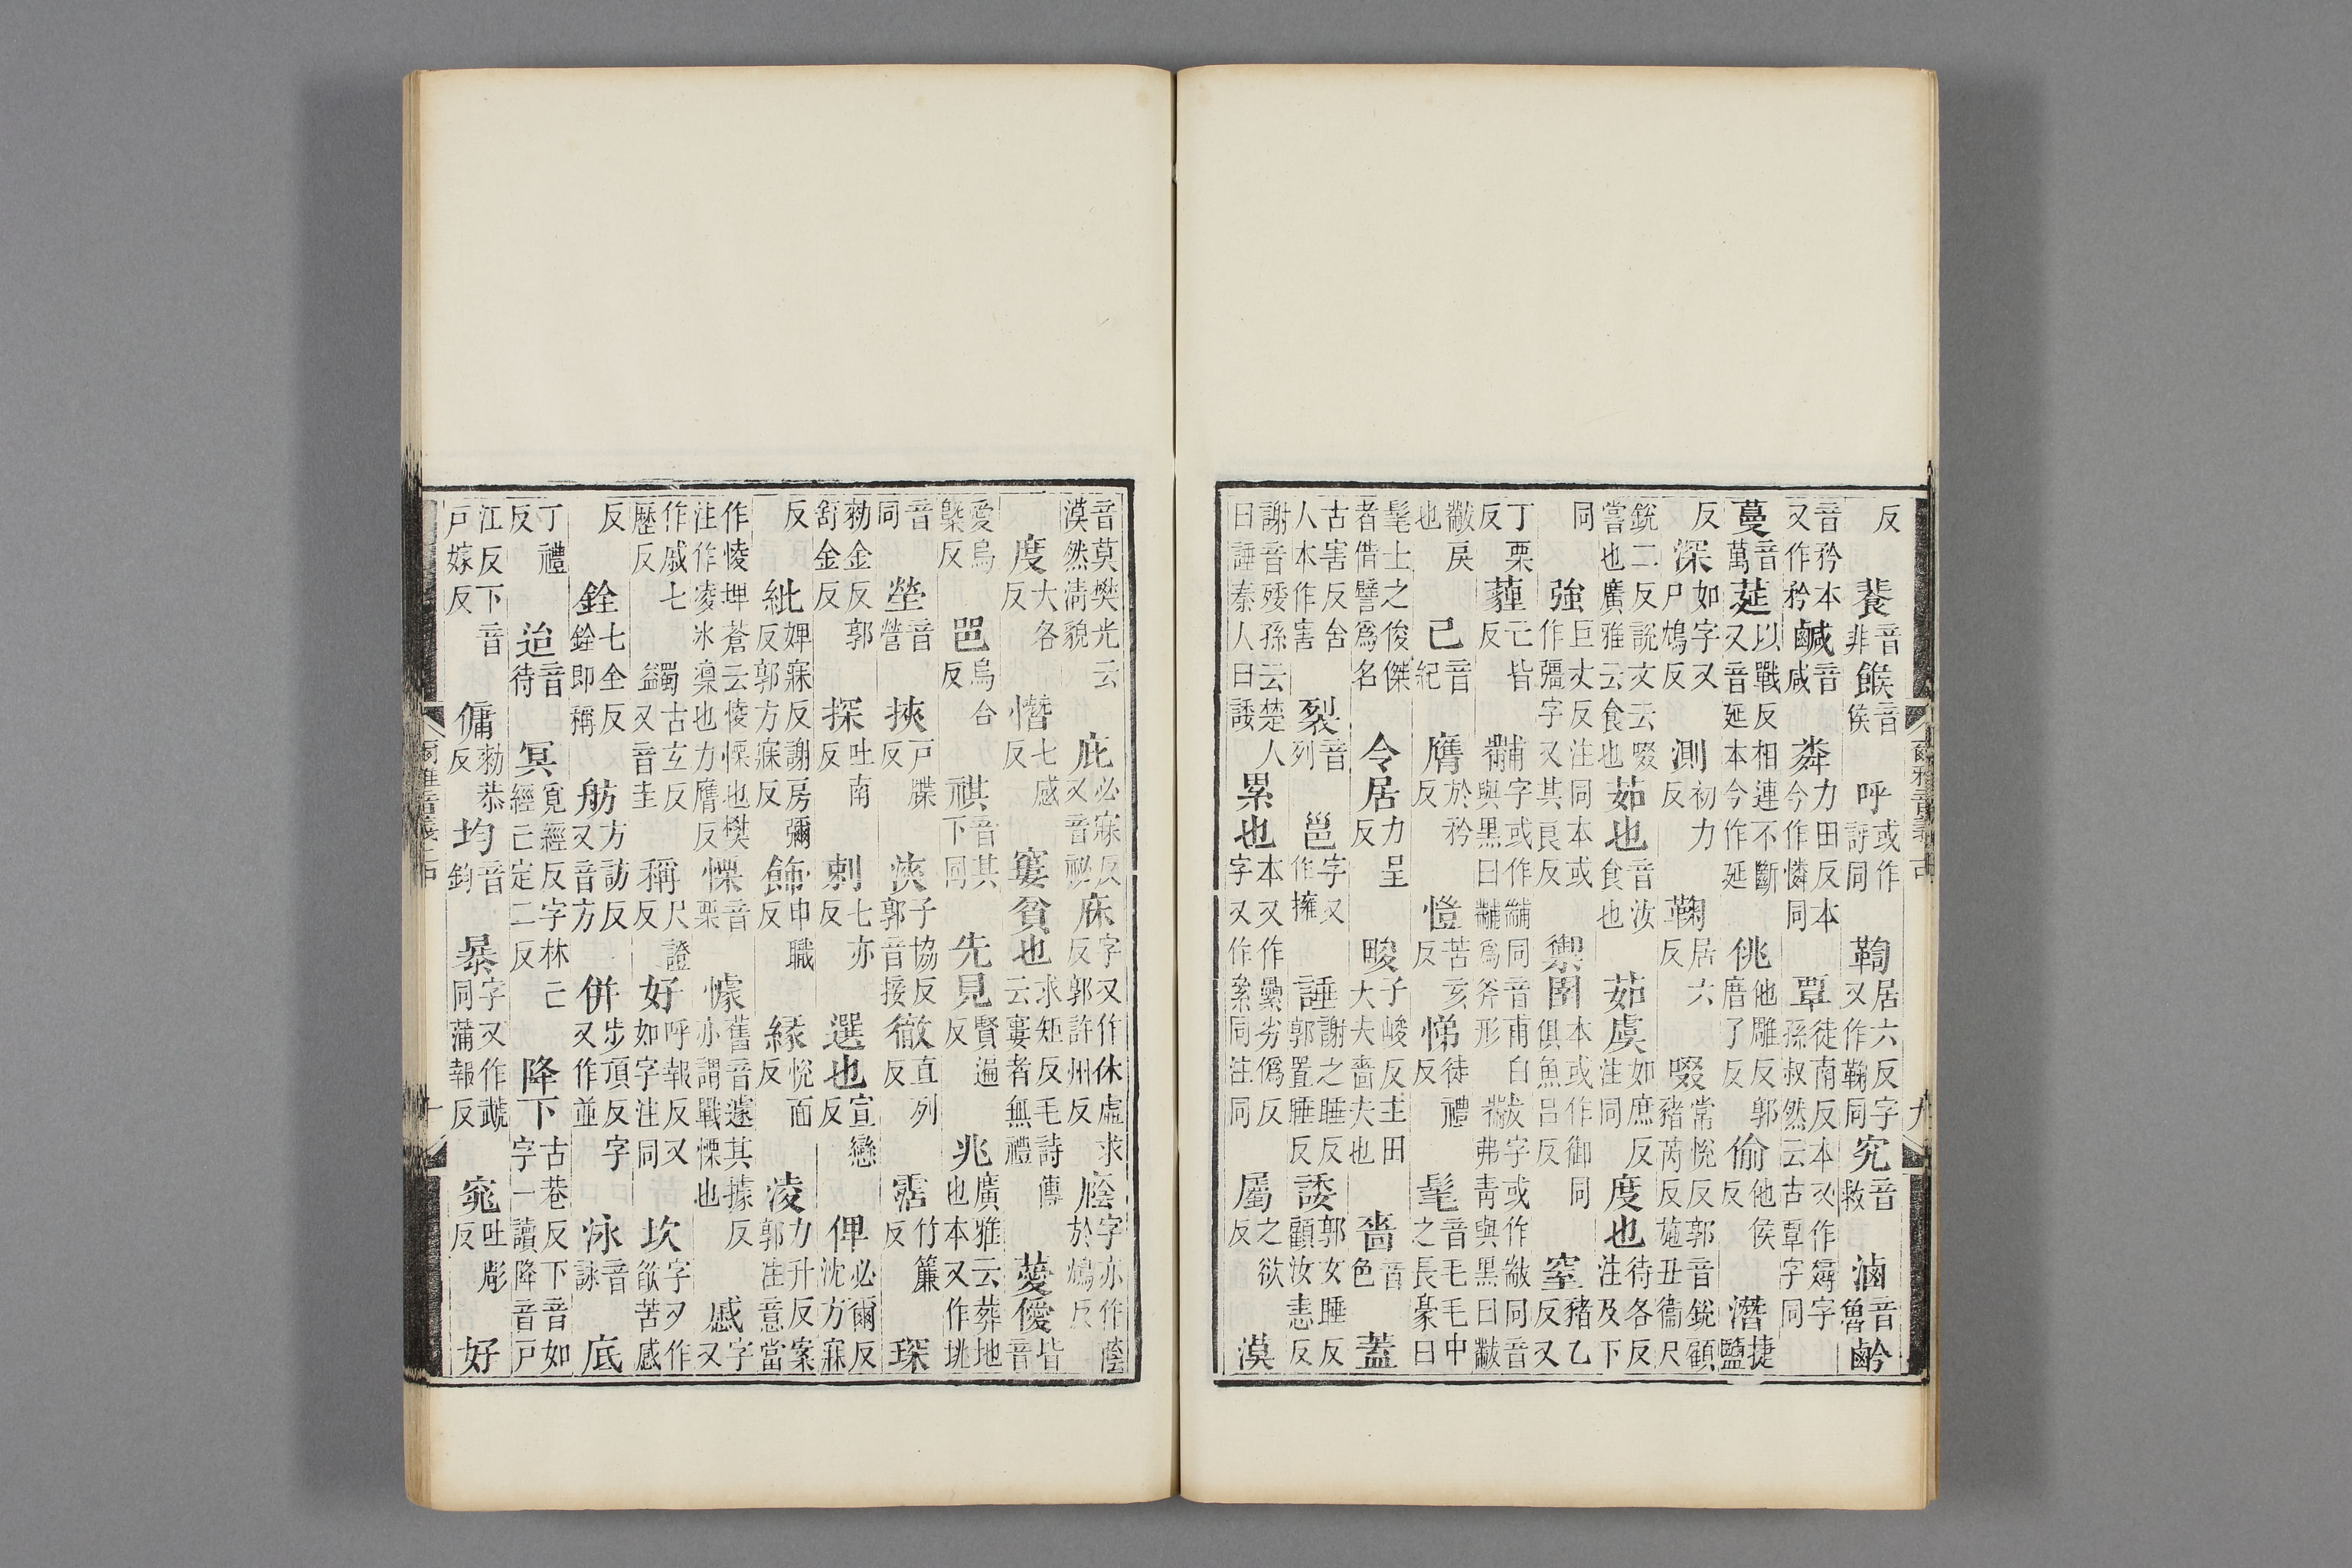 反 餥音非 餱音侯 呼或作謼同 鞫居六反字又作鞠同 究音救 滷音魯 䶖
音矜本又作矜 鹹音咸 粦力田反本今作憐同 覃徒南反本又作燖字孫叔然云古覃字同
蔓音萬 莚以戰反又音延相連不斷本今作延 佻他雕反郭唐了反 偷他侯反 潛捷鹽
反 深如字又尸鴆反 測初力反 鞠居六反 啜常悅反郭音銳顧豬芮反施丑衞尺
銳二反說文云啜嘗也廣雅云食也 茹也音汝食也 茹虞如庶反注同 度也待各反注及下
同 強巨丈反注同本或作彊字又其良反 禦圉本或作御同俱魚呂反 窒豬乙反又
丁栗反 薶亡皆反 黼字或作黼同音甫白與黑曰黼爲斧形 黻字或作黻同音弗靑與黑曰黻
黻戾也 己音紀 膺於矜反 愷苦亥反 悌徒禮反 髦音毛毛中之長毫曰
髦士之俊傑者借譬爲名 令居力呈反 畯子峻反主田大夫嗇夫也 嗇音色 蓋
古害反舍人本作害 裂音列 邕字又作擁 諈謝之睡反郭置睡反 諉郭女睡反顧汝恚反
謝音矮孫云楚人曰諈秦人曰諉 累也本又作纍劣僞反字又作絫同注同 屬之欲反 漠
音莫樊光云漠然淸貌 庇必寐反又音祕 庥字又作休虛求反郭許州反 廕字亦作蔭於鴆反
度大各反 憯七感反 窶貧也求矩反毛詩傳云窶者無禮 薆僾皆音
愛烏槩反 㗊烏合反 祺音其下同 先見賢遍反 兆廣雅云葬地也本又作垗
音同 塋音營 挾戶牒反 浹子協反郭音接 徹直列反 霑竹簾反 琛
勑金反郭舒金反 探吐南反 刺七亦反 選也宣戀反 俾必爾反沈方寐
反 紕婢寐反謝房彌反郭方寐反 飾申職反 緣悅面反 凌力升反案郭注意當
作㥄埤蒼云㥄慄也樊注作凌冰凜也力膺反 慄音栗 懅舊音遽其據反亦謂戰慄也 慼字又
作戚七歷反 蠲古玄反又音圭 稱尺證反 好呼報反又如字注同 坎字又作欿苦感
反 銓七全反銓即稱 舫方訪反又音方 併步頂反字又作並 泳音詠 底
丁禮反 迨音待 冥覓經反字林已經已定二反 降下古巷反下音如字一讀降音戶
江反下音戶嫁反 傭勑恭反 均音鈞 暴字又作虣同蒲報反 窕吐彫反 好
爾雅音義 九